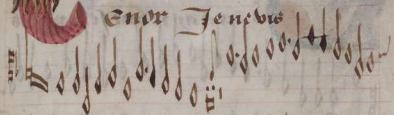 enor Je nevis